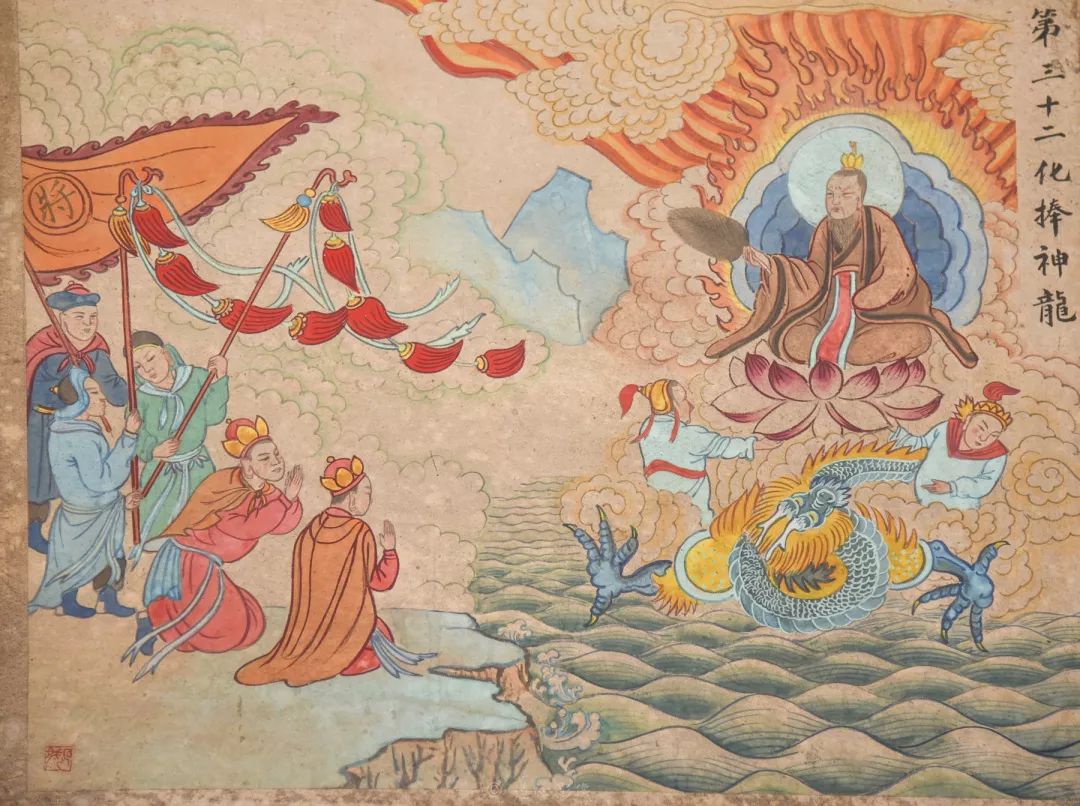 第三十二化捧神龍
將